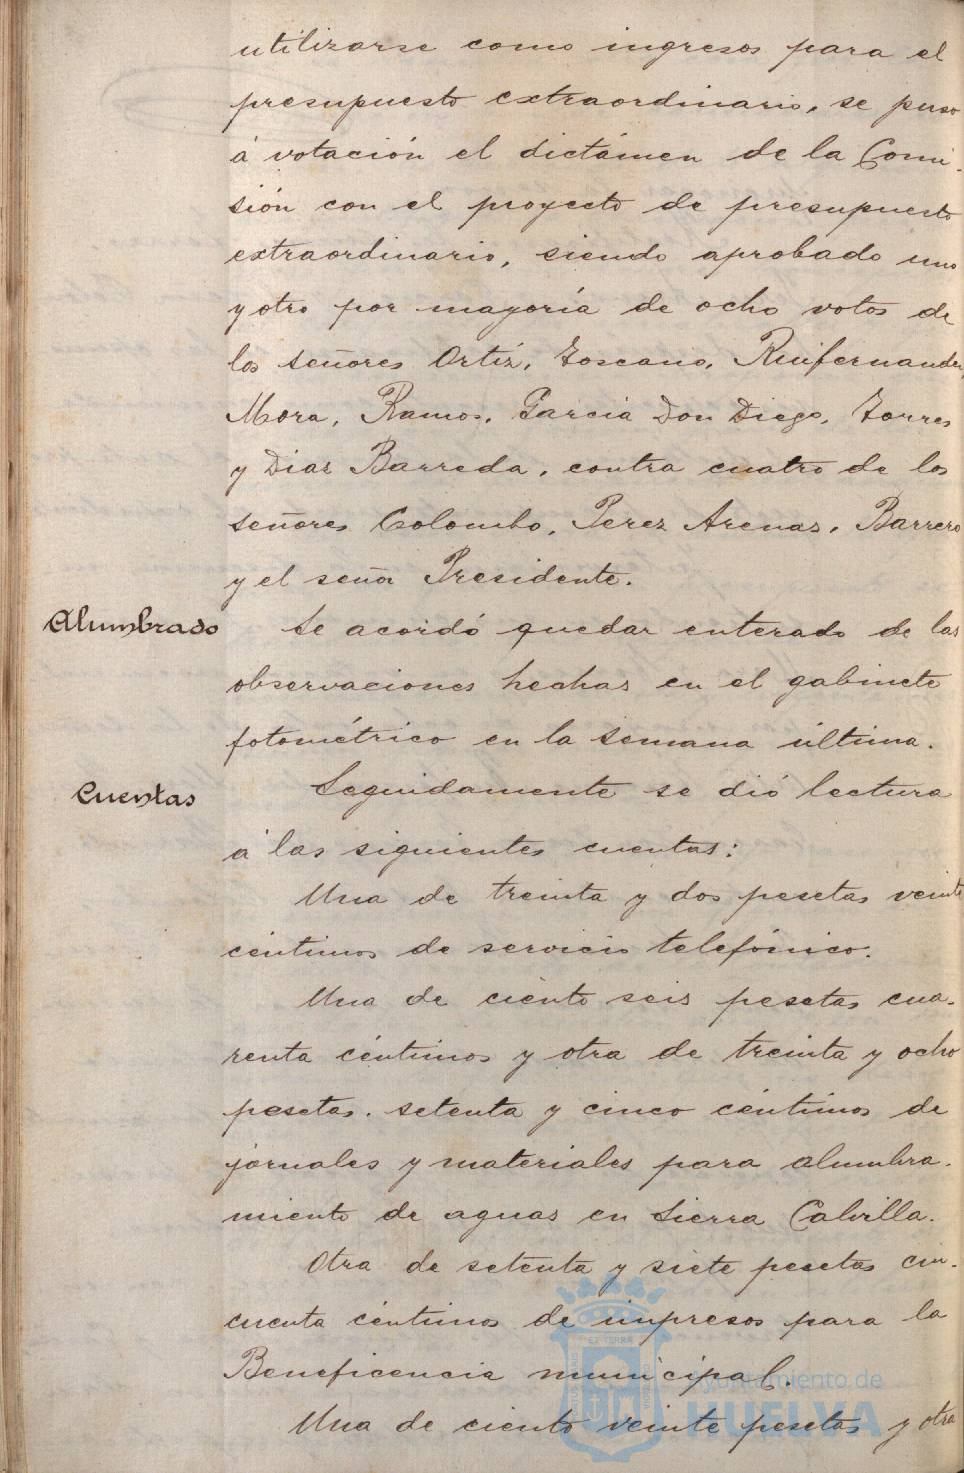 utilizarse como ingresos para el
presupuesto extraordinario, se puso
á votación el dictámen de la Comi-
sión con el proyecto de presupuesto
extraordinario, siendo aprobado uno
y otro por mayoría de ocho votos de
los señores Ortiz, Toscano, Ruifernandez,
Mora, Ramos, Garcia Don Diego, Torres
y Diaz Barreda, contra cuatro de los
señores Colombo, Perez Arenas, Barrero
y el señor Presidente.
Alumbrado
Se acordó quedar enterado de las
observaciones hechas en el gabinete
fotométrico en la semana última.
Cuentas
Seguidamente se dió lectura
á las siguientes cuentas:
Una de treinta y dos pesetas veinte
céntimos de servicio telefónico.
Una de ciento seis pesetas cua-
renta céntimos y otra de treinta y ocho
pesetas. setenta y cinco céntimos de
jornales y materiales para alumbra-
miento de aguas en Sierra Calvilla.
Otra de setenta y siete pesetas cin-
cuenta céntimos de impresos para la
Beneficencia municipal.
Una de ciento veinte pesetas y otra
Ayuntamiento de
HUELVA